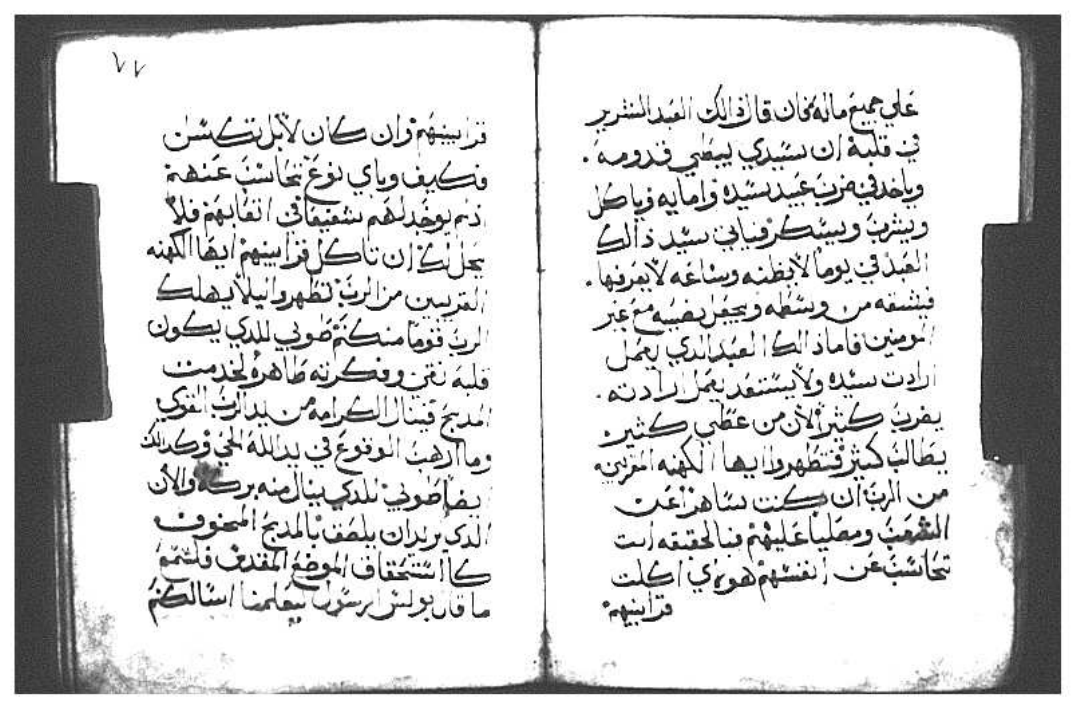 علي جميع ماله فان قال ذالك العبد الشرير
في قلبه ان سيدي يبطي قدومه .
وياخد في ضرب عبيد سيده واما يه وياكل
ويشرب ويسكر فياتي سيد ذالك
العبد في يوما لايظنه وساعه لايعرفها .
فيشقه من وسطه ويجعل نصيبه مع غير
المومنين فاما ذالك العبد الدي يعمل
ارادت سيده ولايستعد يعمل ارادته .
يضرب كثير الان من عطي كثير
يطالب كثير فتطهروا ايها الكهنه المقربين
من الرب ان كنت ساهرا عن
الشعب ومصليا عليهم فبالحقيقه انت
تحاسب عن انفسهم هودي اكلت
قرابينهم
٧٧
قرابينهم وان كان لابل تكسل
فكيف وباي نوع تحاسب عنهم
اذ لم يوجد لهم شفيعا في اتقابهم فلا
يحل لك ان تاكل قرابينهم ايها الكهنه
القريبين من الرب تطهروا ليلا يهلك
الرب قوما منكم طوبي للدي يكون
قلبه نقي وفكرته طاهره لخدمت
المدبح فينال الكرامه من يد الرب القوي
وما ارهب الوقوع في يد الله الحي وكدالك
ايضا طوبي للدي ينال منه بركه والان
الذي يريد ان يلصق بالمدبح المخوف
كا استحقاق الموضع المقدس فلتتم
ما قال بولس الرسول ليعلمنا اسالكم